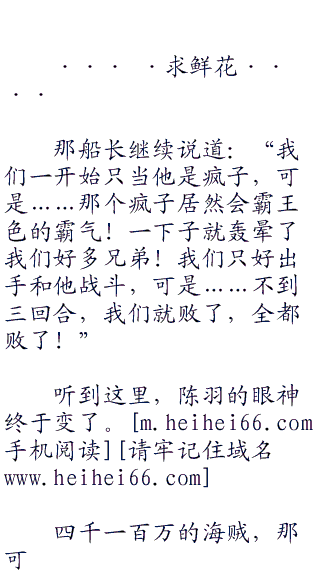 · · · ·求鲜花· ·
· ·
那船长继续说道：“我
们一开始只当他是疯子，可
是……那个疯子居然会霸王
色的霸气！一下子就轰晕了
我们好多兄弟！我们只好出
手和他战斗，可是……不到
三回合，我们就败了，全都
败了！”
听到这里，陈羽的眼神
终于变了。[m.heihei66.com
手机阅读][请牢记住域名
www.heihei66.com]
四千一百万的海贼，那
可